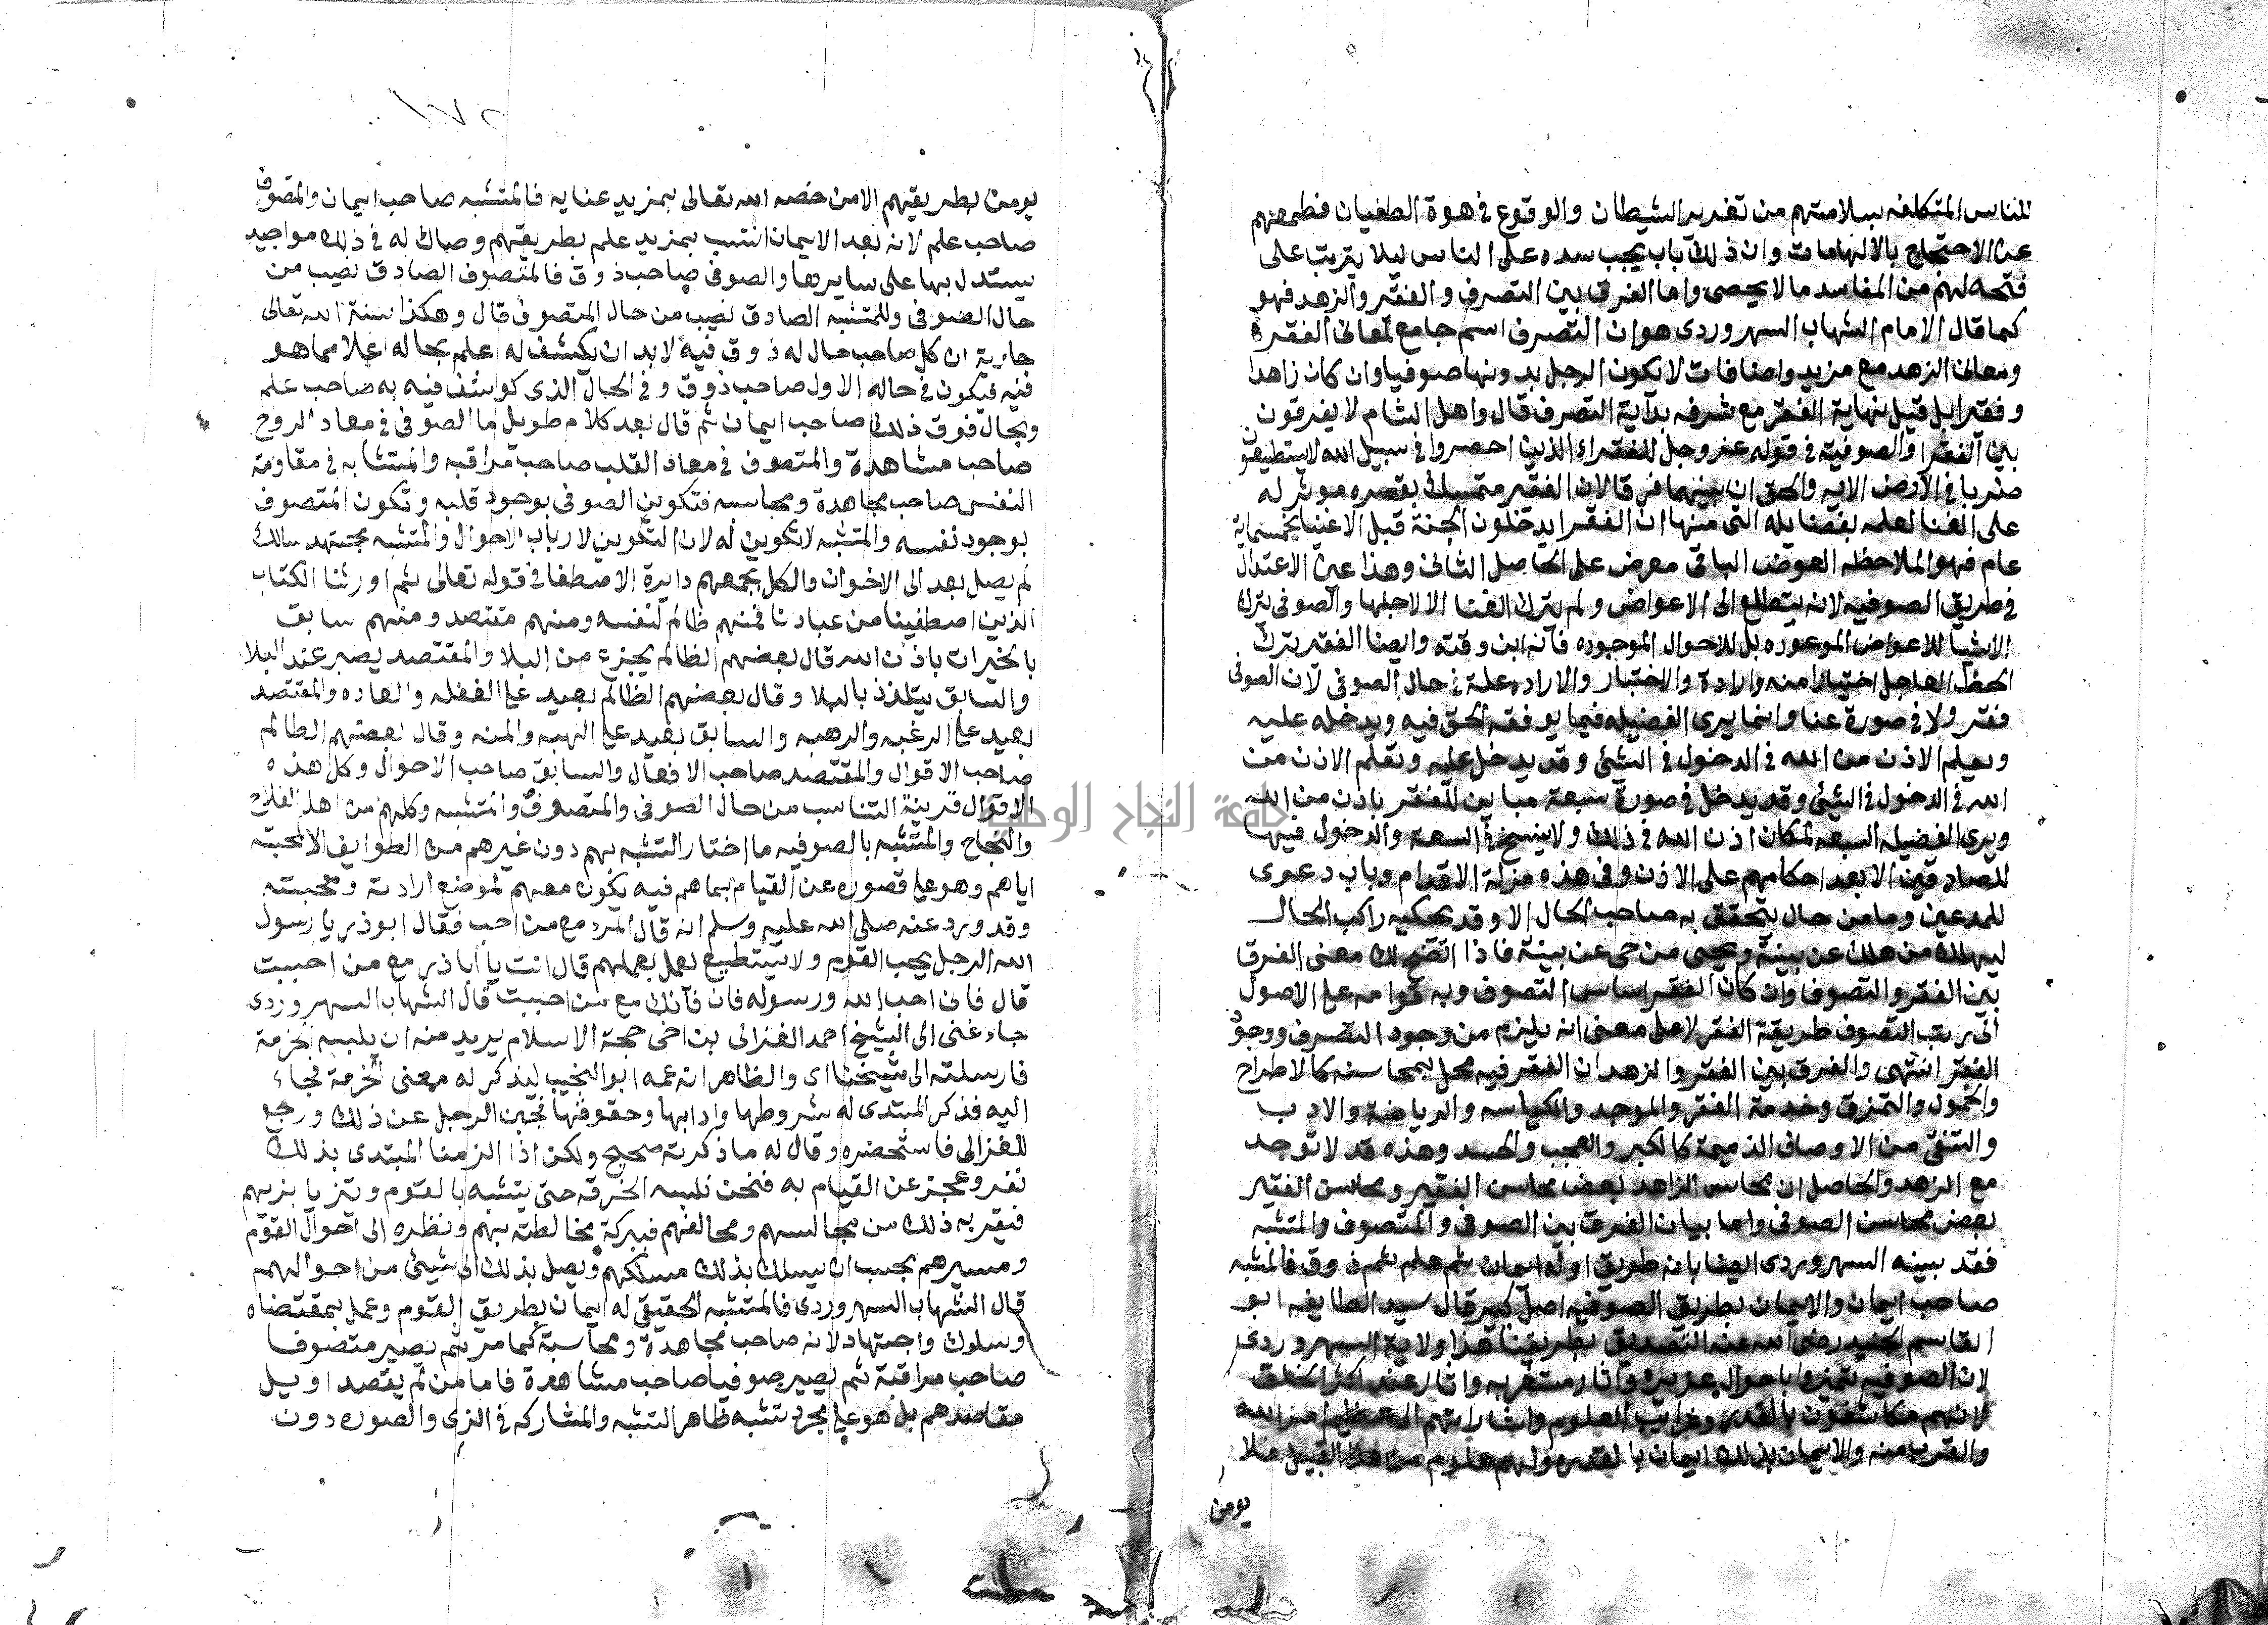 للناس المتكلفه بسلامتهم من تغرير الشيطان والوقوع في هوة الطغيان فطمعهم
عن الاحتجاج بالالهامات وان ذلك باب يجب سده على الناس ليلا يترتب على
فتحه لهم من المفاسد ما لا يحصى واما الفرق بين التصوف والفقر والزهد فهو
كما قال الامام الشهاب السهروردى هو ان التصوف اسم جامع لمعانى الفقر
ومعانى الزهد مع مزيد واضافات لا يكون الرجل بدونها صوفيا وان كان زاهدا
وفقيرا بل قيل نهاية الفقر مع شرفه بداية التصوف قال واهل الشام لا يفرقون
بين الفقرا والصوفية في قوله عز وجل للفقراء الذين احصروا في سبيل الله لا يستطيعون
ضربا في الارض الايه والحق ان بينهما فرقا لان الفقير متمسك بفقره موثر له
على الغنا لعلمه بفضايله التى منها ان الفقرا يدخلون الجنة قبل الاغنيا بخمسماية
عام فهو لملاحظه العوض الباقى معرض على الحاصل الثانى وهذا عين الاعتلال
في طريق الصوفيه لانه يتطلع الى الاعواض ولم يترك الغنا الا لاجلها والصوفى يترك
الاشيا لا للاعواض الموعوده بل للاحوال الموجوده فانه ابن وقته وايضا الفقير يترك
الحظ العاجل اختيارا منه وارادة والاختيار والاراده علة في حال الصوفى لان الصوفى
فقر ولا في صورة غنا وانما يرى الفضيله فيما يوفقه الحق فيه ويدخله عليه
ويعلم الاذن من الله في الدخول في الشئ وقد يدخل عليه وتعلم الاذن من
الله في الدخول في الشئ وقد يدخل في صورة سعة مباين للفقر باذن من الله
ويرى الفضيله السعه لمكان اذن الله في ذلك ولا ينسخ في السعة والدخول فيها
للصادقين الا بعد احكامهم على الاذن وفى هذه مزلة الاقدام وباب دعوى
للمدعين وما من حال يتحقق به صاحب الحال الا وقد يحكيه راكب الحال
ليهلك من هلك عن بينة ويحيى من حى عن بينة فاذا اتضح لك معنى الفرق
بين الفقر والتصوف وان كان الفقر اساس التصوف وبه قوامه على الاصول
الى رتب التصوف طريقة الفقر لا على معنى انه يلزم من وجود التصوف ووجود
الفقر انتهى والفرق بين الفقر والزهد ان الفقر فيه محل بمحاسنه كالاطراح
والخمول والتمزق وخدمة الفقر والموجد والكياسه والرياضة والادب
والتنقى من الاوصاف الذميمة كالكبر والعجب والحسد وهذه قد لا توجد
مع الزهد والحاصل ان محاسن الزاهد بعض محاسن الفقير ومحاسن الفقير
بعض محاسن الصوفى واما بيان الفرق بين الصوفى والمتصوف والمتشبه
فقد بينه السهروردى ايضا بانه طريق اوله ايمان ثم علم ثم ذوق فالمتشبه
صاحب ايمان والايمان بطريق الصوفيه اصل كبير قال سيد الطايفه ابو
القاسم الجنيد رضى الله عنه التصديق بطريقنا هذا ولاية السهروردى
لان الصوفيه تميزوا باحوال عزيزه واثار مستغربه واثار عند اكثر الخلق
لانهم مكاشفون بالقدر وغرايب العلوم واشاراتهم الى عظيم امر الله
والقرب منه والايمان بذلك ايمان بالقدره ولهم علوم من هذا القبيل فلا
يومن
يومن بطريقهم الا من خصه الله تعالى بمزيد عنايه فالمتشبه صاحب ايمان والمتصوف
صاحب علم لانه بعد الايمان انتسب بمزيد علم بطريقهم وصار له في ذلك مواجيد
يستدل بها على سايرها والصوفى صاحب ذوق فالمتصوف الصادق نصيب من
حال الصوفى وللمتشبه الصادق نصيب من حال المتصوف قال وهكذا سنة الله تعالى
جارية ان كل صاحب حال له ذوق فيه لا بد ان يكشف له علم بحاله اعلا مما هو
فيه فيكون في حاله الاول صاحب ذوق وفى الحال الذى كوشف فيه به صاحب علم
وبحال فوق ذلك صاحب ايمان ثم قال بعد كلام طويل ما الصوفى في معاد الروح
صاحب مشاهدة والمتصوف في معاد القلب صاحب مراقبه والمتشابه في مقاومة
النفس صاحب مجاهدة ومحاسبه فتكوين الصوفى بوجود قلبه وتكون المتصوف
بوجود نفسه والمتشبه لا تكوين له لان التكوين لارباب الاحوال والمتشبه مجتهد سالك
لم يصل بعد الى الاخوان والكل يجمعهم دايرة الاصطفا في قوله تعالى ثم اورثنا الكتاب
الذين اصطفينا من عبادنا فمنهم ظالم لنفسه ومنهم مقتصد ومنهم سابق
بالخيرات باذن الله قال بعضهم الظالم يجزع من البلا والمقتصد يصبر عند البلا
والسابق يتلذذ بالبلا وقال بعضهم الظالم يعبد على الغفله والعاده والمقتصد
يعبد على الرغبه والرهبه والسابق يعبد على الهيبه والمنه وقال بعضهم الظالم
صاحب الاقوال والمقتصد صاحب الافعال والسابق صاحب الاحوال وكل هذه
الاقوال قريبة التناسب من حال الصوفى والمتصوف والمتشبه وكلهم من اهل الفلاح
والنجاح والمتشبه بالصوفيه ما اختار التشبه بهم دون غيرهم من الطوايف الا لمحبته
اياهم وهو على قصوره عن القيام بما هم فيه يكون معهم لموضع ارادته ومحبته
وقد ورد عنه صلى الله عليه وسلم انه قال المرء مع من احب فقال ابو ذر يا رسول
الله الرجل يحب القوم ولا يستطيع يعمل بعملهم قال انت يا اباذر مع من احببت
قال فانى احب الله ورسوله قال فانك مع من احببت قال الشهاب السهروردى
جاء غنى الى الشيخ احمد الغزالى بن اخى حجة الاسلام يريد منه ان يلبسه الخرقة
فارسلته الى شيخنا اى والظاهر انه عمه ابو النجيب ليذكر له معنى الخرقة فجاء
اليه فذكر المبتدى له شروطها وادابها وحقوقها فجبن الرجل عن ذلك ورجع
للغزالى فاستحضره وقال له ما ذكرته صحيح ولكن اذا الزمنا المبتدى بذلك
نفر وعجز عن القيام به فنحن نلبسه الخرقه حتى يتشبه بالقوم ويتزيا بزيهم
فيقربه ذلك من مجالسهم ومحافلهم فببركة مخالطته بهم ونظره الى احوال القوم
ومسيرهم يحب ان يسلك بذلك مسلكهم ويصل بذلك الى شيئ من احوالهم
قال الشهاب السهروردى فالمتشبه الحقيقى له ايمان بطريق القوم وعمل بمقتضاه
وسلوك واجتهاد لانه صاحب مجاهدة ومحاسبة كما مر ثم يصير متصوفا
صاحب مراقبة ثم يصير صوفيا صاحب مشاهدة فاما من لم يقصد اويل
مقاصدهم بل هو على مجرد تشبه ظاهر التشبه والمشاركه في الزى والصوره دون
جامعة النجاح الوطنية